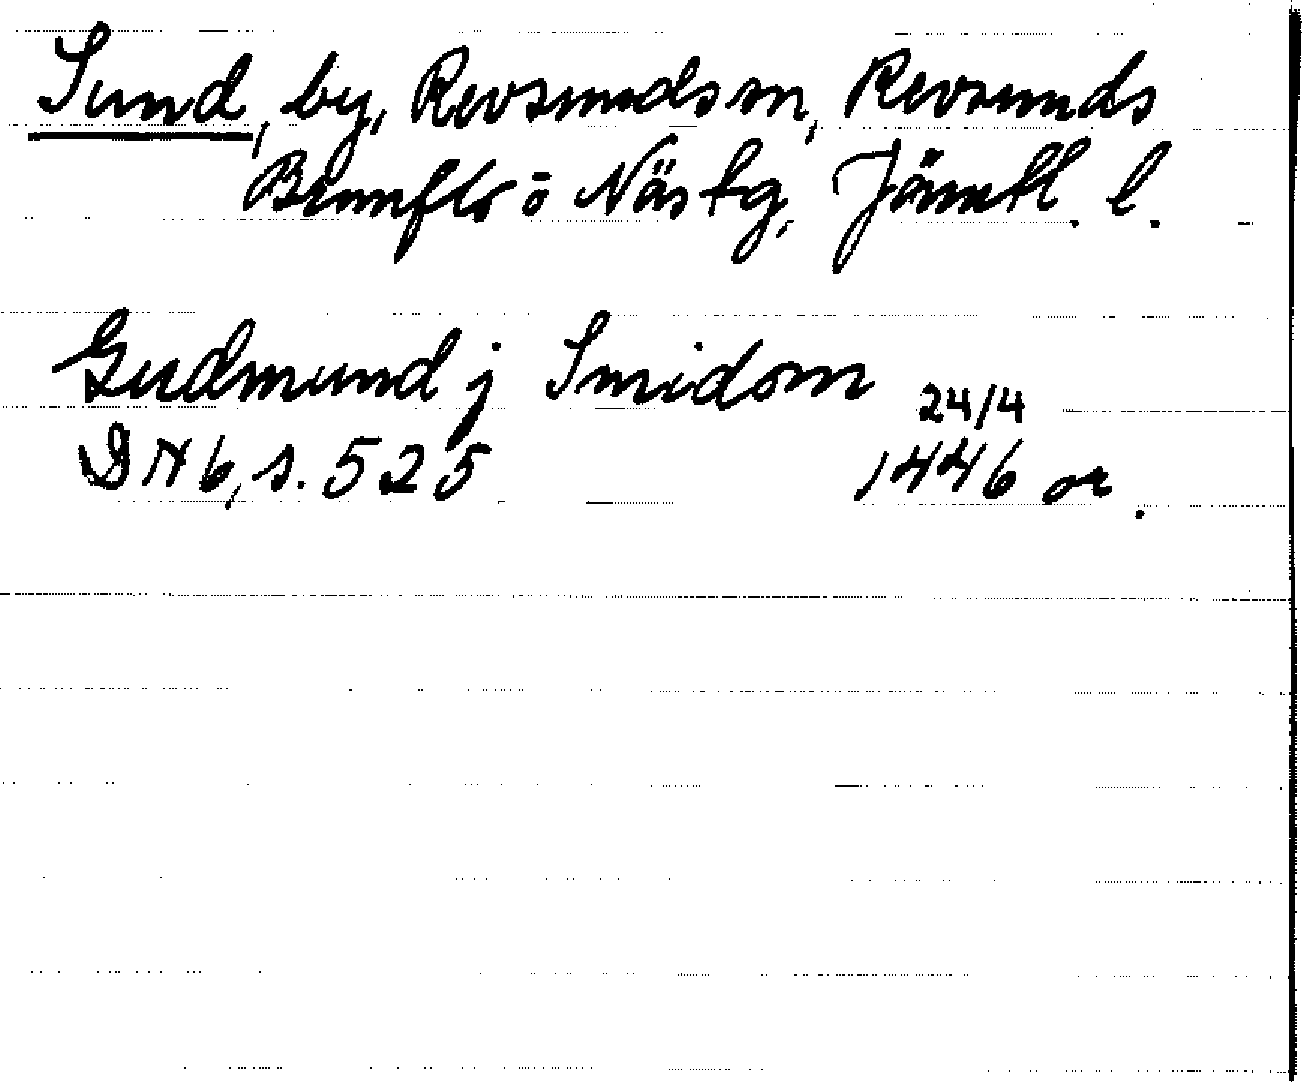 Sund, by, Revsunds sn, Revsunds
Brunflo ō Näs tg, Jämtl. l.
Gudmund j Smidom
24/4
DN 6, s. 525 1446 or.